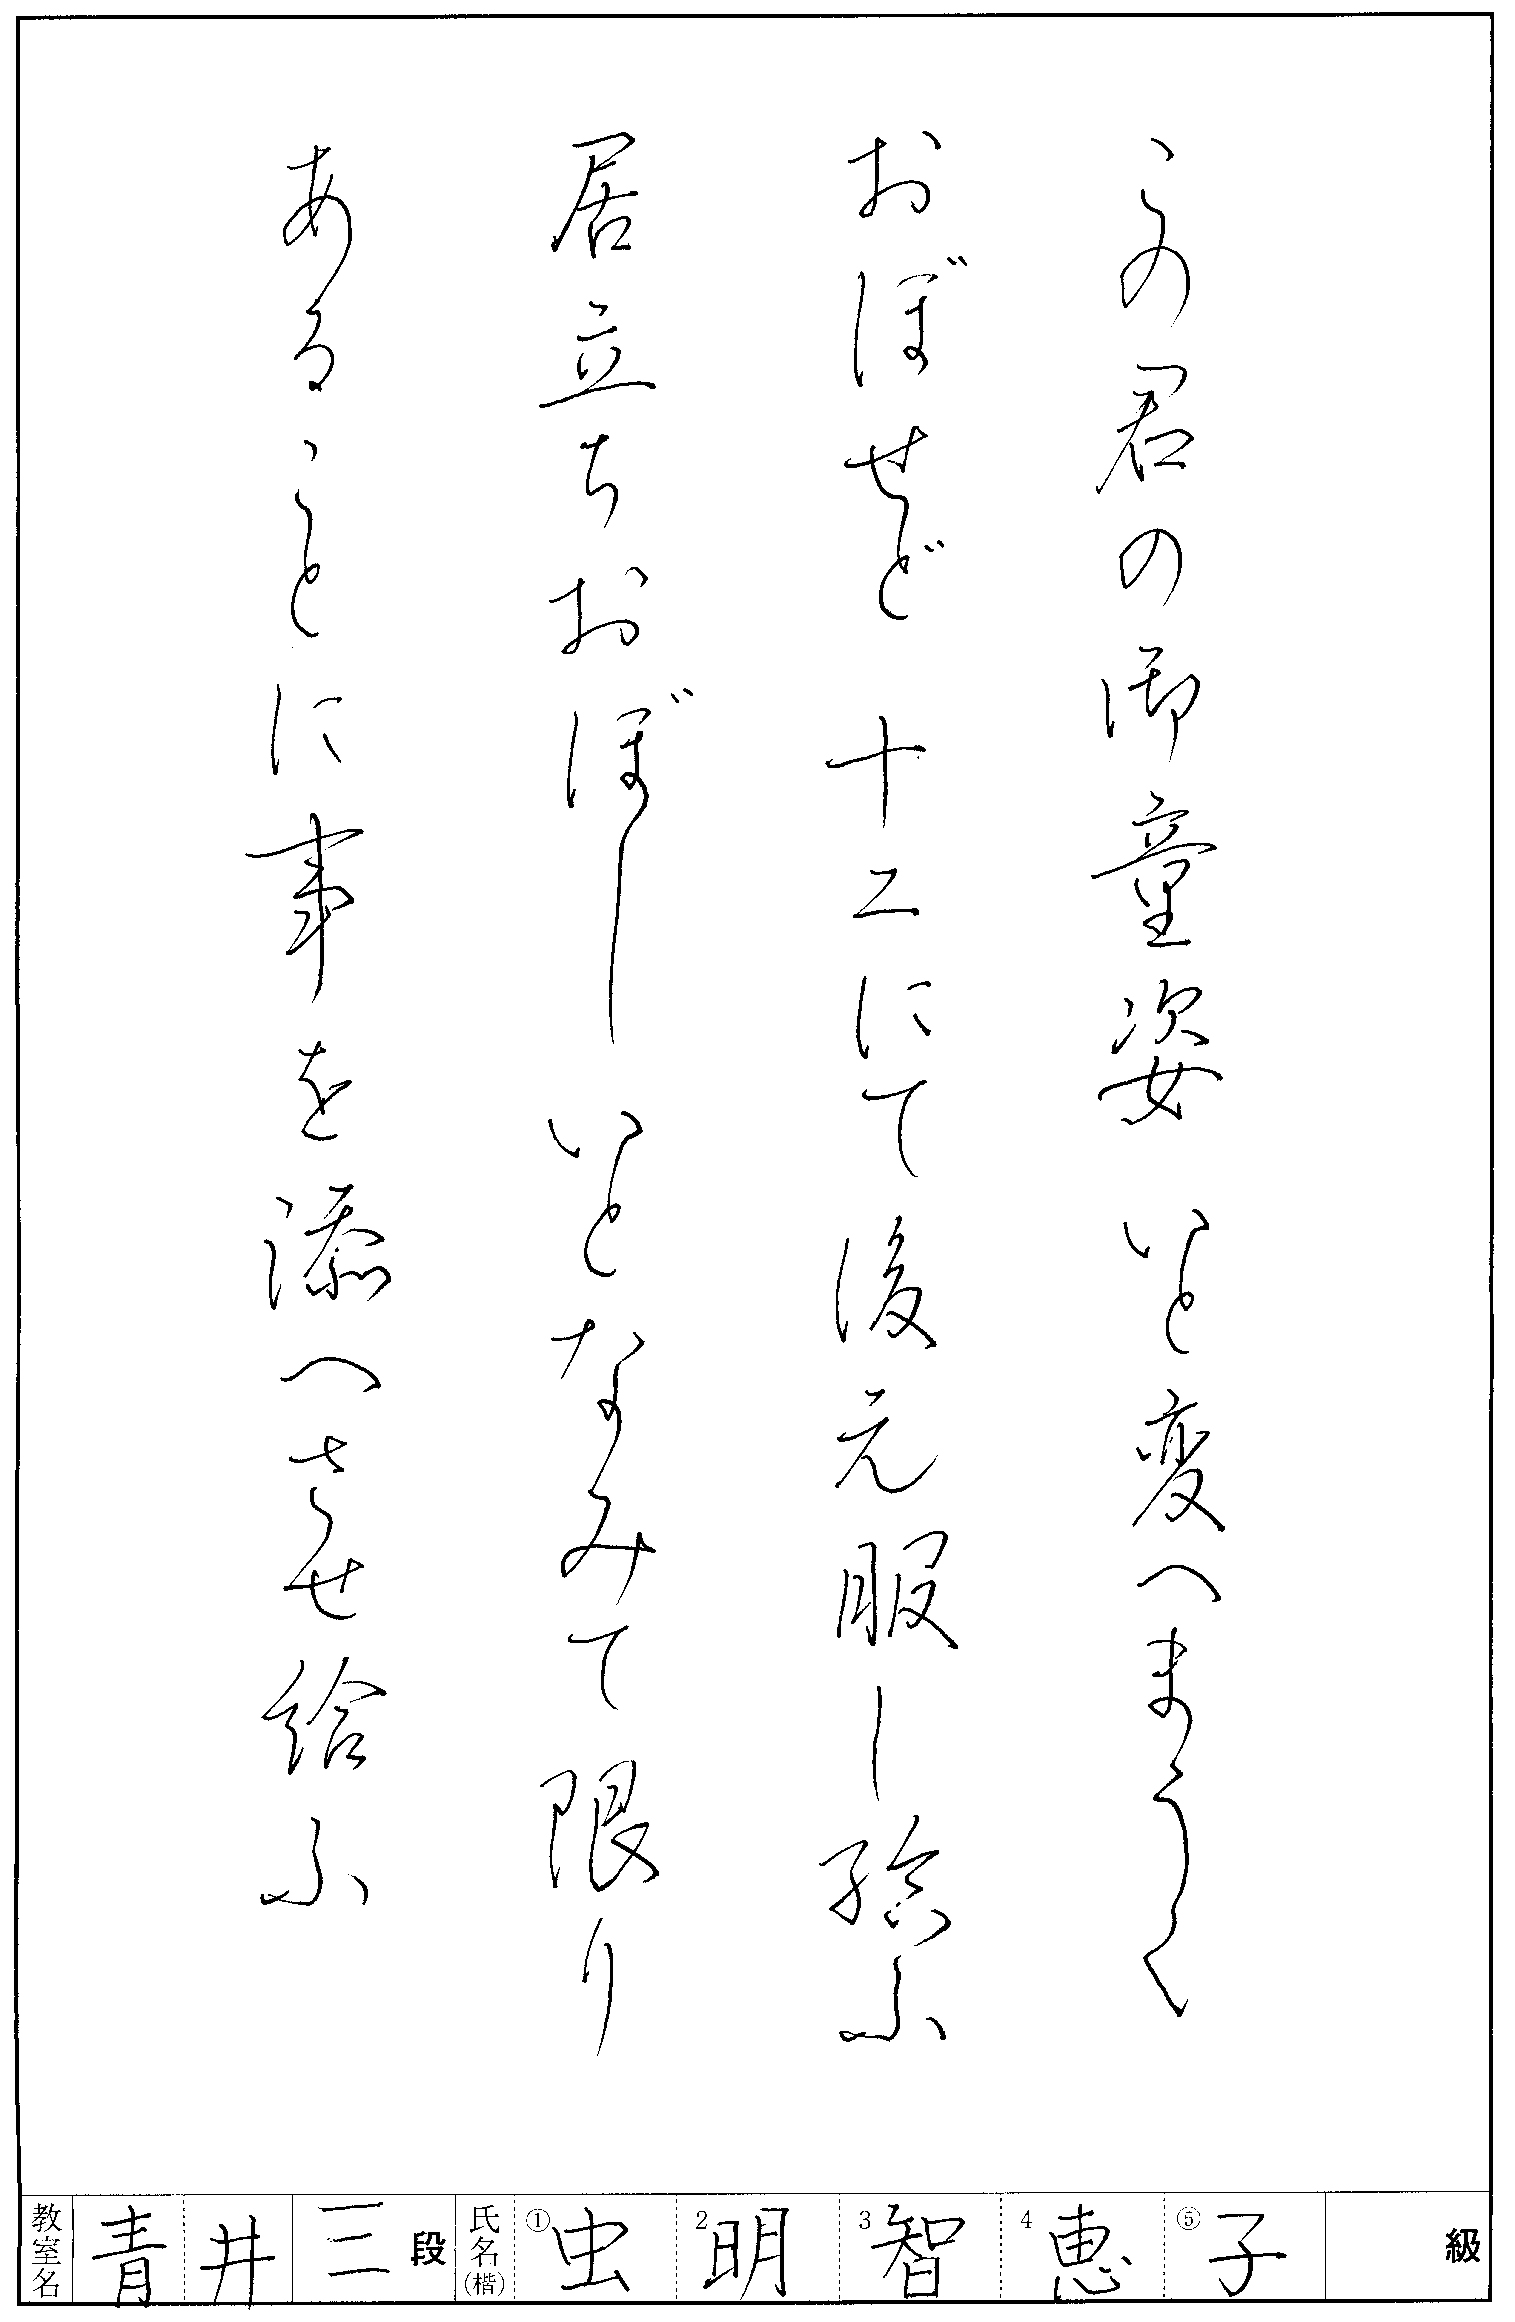 この君の御童姿 いと変へまうく
おぼせど 十二にて後元服し給ふ
居立ちおぼし いとなみて限り
あることに事を添へさせ給ふ
教室名 青井 三段 氏名(楷) ①虫 2明 3智 4恵 ⑤子 級